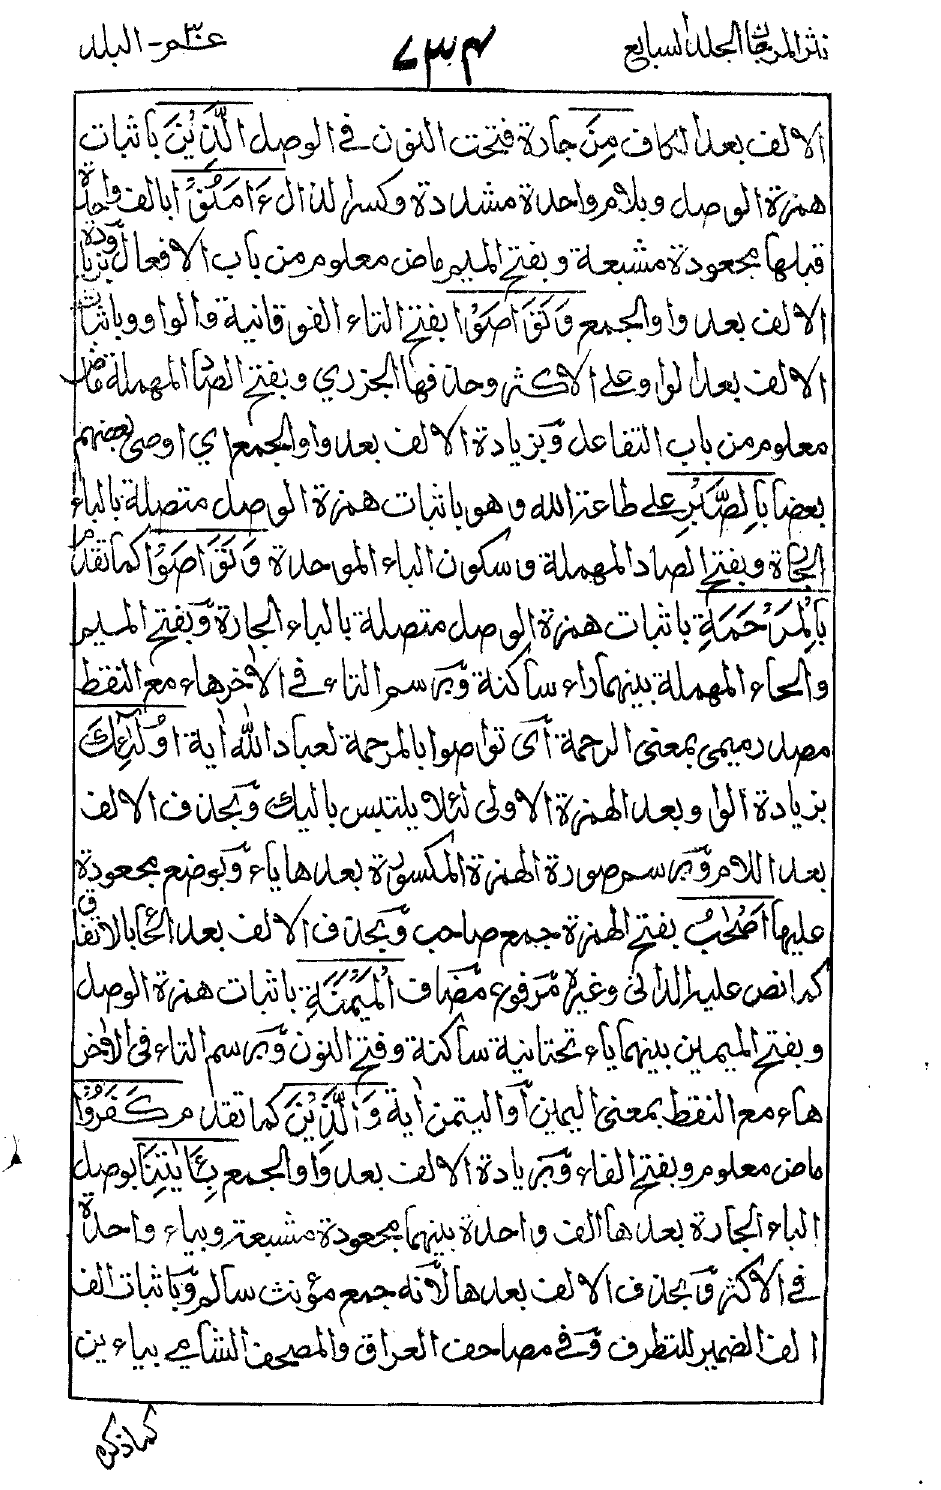 نثر المرجان الجلد السابع
٧٣٤
عم ٣٠ - البلد
الالف بعد الكاف مِنَ جارة فتحت النون في الوصل الَّذِيْنَ باثبات
همزة الوصل وبلام واحدة مشددة وكسر الذال ءَامَنُوْا بالف واحدة
قبلها مجعودة مشبعة وبفتح الميم ماض معلوم من باب الافعال وبزيادة
الالف بعد واو الجمع وَتَوَاصَوْا بفتح التاء الفوقانية والواو وباثبات
الالف بعد الواو على الاكثر وحذفها الجزري وبفتح الصاد المهملة ماض
معلوم من باب التفاعل وَبزيادة الالف بعد واو الجمع اي اوصى بعضهم
بعضا بِالصَّبْرِ على طاعة الله وهو باثبات همزة الوصل متصلة بالباء
الجارة وبفتح الصاد المهملة وسكون الباء الموحدة وَتَوَاصَوْا كما تقدم
بِالْمَرْحَمَةِ باثبات همزة الوصل متصلة بالباء الجارة وَبفتح الميم
والحاء المهملة بينهما راء ساكنة وَبرسم التاء في الاٰخر هاء مع النقط
مصدر ميمى بمعنى الرحمة اَى تواصوا بالمرحمة لعباد اللّٰه اٰية اُولٰٓئِكَ
بزيادة الواو بعد الهمزة الاولى لئلا يلتبس باليك وَبحذف الالف
بعد اللام وَبرسم صورة الهمزة المكسورة بعدها ياء وَبوضع مجعودة
عليها اَصْحٰبُ بفتح الهمزة جمع صاحب وَبحذف الالف بعد الحاء بالاتفاق
كما نص عليه الدانى وغيره مرفوع مضاف الْمَيْمَنَةِ باثبات همزة الوصل
وبفتح الميمين بينهما ياء تحتانية ساكنة وفتح النون وَبرسم التاء فى الاٰخر
هاء مع النقط بمعنى اليمين اَو اليتمن اٰية وَالَّذِيْنَ كما تقدم كَفَرُوْا
ماض معلوم وبفتح الفاء وَبزيادة الالف بعد واو الجمع بِـَٔايٰتِنَا بوصل
الباء الجارة بعدها الف واحدة بينهما مجعودة مشبعة وبياء واحدة
في الاكثر وَبحذف الالف بعدها لاَنه جمع مؤنث سالم وَباثبات الف
الف الضمير للتطرف وَفي مصاحف العراق والمصحف الشامي بياءين
كما ذكره